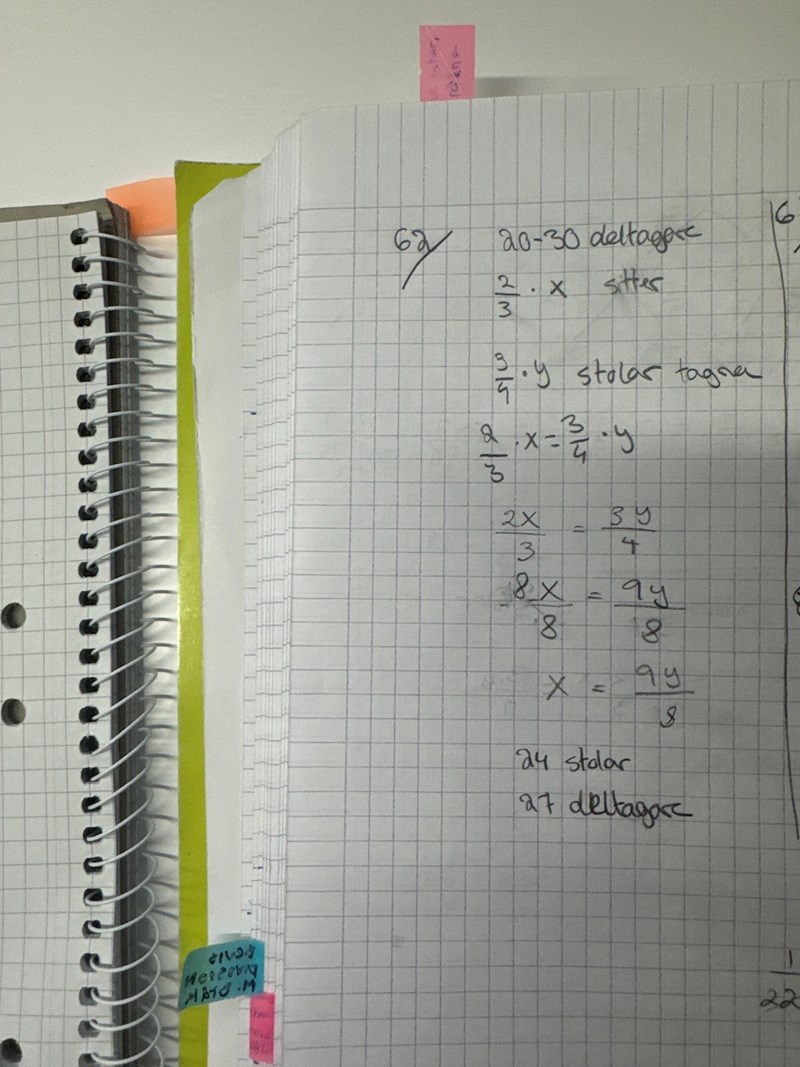 62/ 20-30 deltagare
2/3 · x sitter
3/4 · y stolar tagna
2/3 · x = 3/4 · y
2x/3 = 3y/4
8x/8 = 9y/8
x = 9y/8
24 stolar
27 deltagare
6
1/22